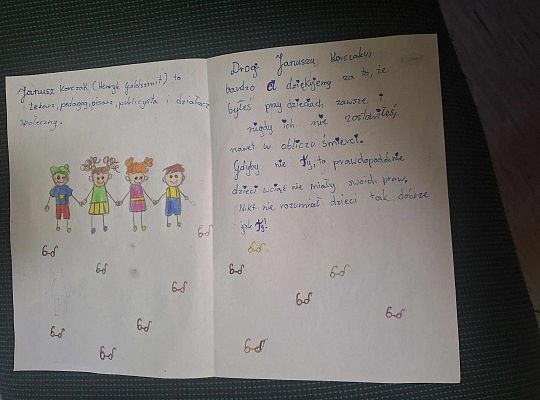 Janusz Korczak (Henryk Goldszmit) to
lekarz, pedagog, pisarz, publicysta i działacz
społeczny.
Drogi Januszu Korczaku,
bardzo Ci dziękujemy za to, że
byłeś przy dzieciach zawsze i
nigdy ich nie zostawiłeś,
nawet w obliczu śmierci.
Gdyby nie Ty, to prawdopodobnie
dzieci wciąż nie miałyby swoich praw.
Nikt nie rozumiał dzieci tak dobrze
jak Ty!